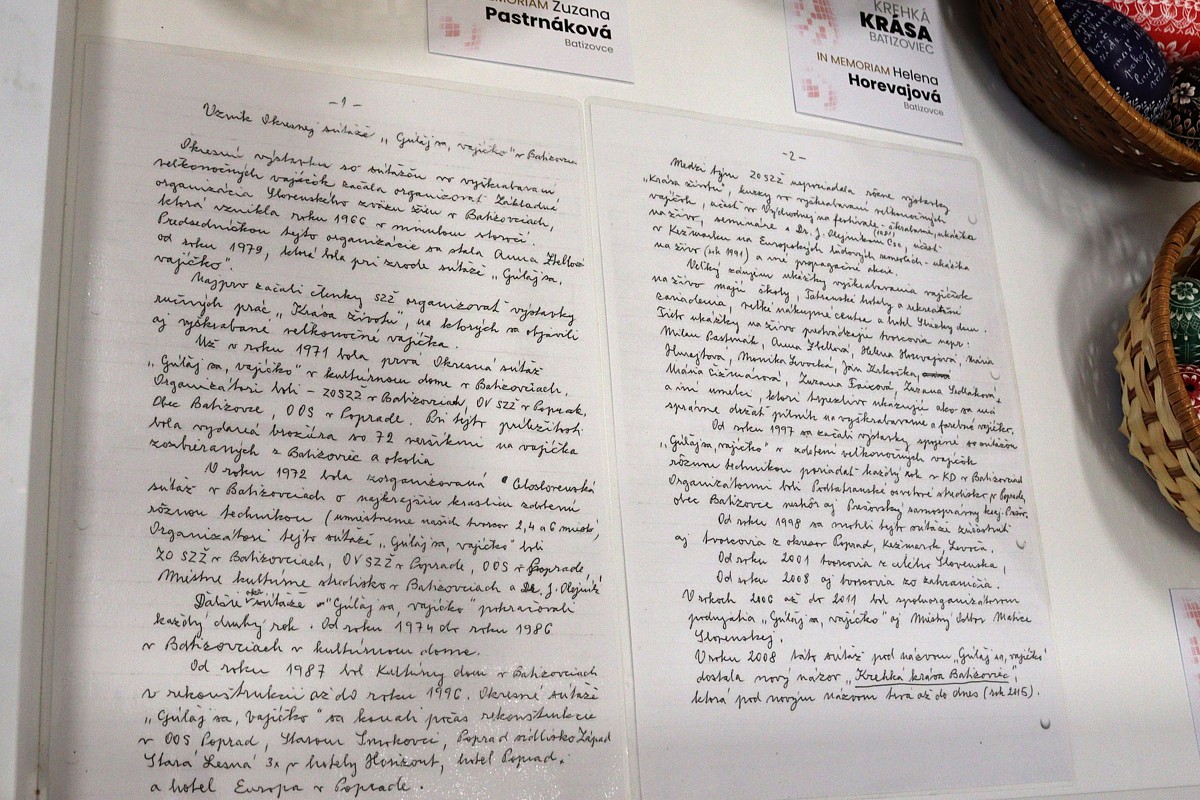 MEMORIAM Zuzana
Pastrnáková
Batizovce
KREHKÁ
KRÁSA
BATIZOVIEC
IN MEMORIAM Helena
Horevajová
Batizovce
-1-
Vznik Okresnej súťaže „Gúľaj sa, vajíčko" v Batizovciach
Okresnú výstavku so súťažou vo vyškrabávaní
veľkonočných vajíčok začala organizovať Základná
organizácia Slovenského zväzu žien v Batizovciach,
ktorá vznikla roku 1966 v minulom storočí.
Predsedníčkou tejto organizácie sa stala Anna
od roku 1979, ktorá bola pri zrode súťaže „Gúľaj sa,
vajíčko".
Najprv začali členky SZŽ organizovať výstavky
ručných prác „Krása životu", na ktorých sa objavili
aj vyškrabané veľkonočné vajíčka.
Už v roku 1971 bola prvá Okresná súťaž
„Gúľaj sa, vajíčko" v kultúrnom dome v Batizovciach.
Organizátori boli - ZOSZŽ v Batizovciach, OV SZŽ v Poprade,
Obec Batizovce, OOS v Poprade. Pri tejto príležitosti
bola vydaná brožúra so 72 veršíkmi na vajíčka
zozbieraných z Batizoviec a okolia
V roku 1972 bola zorganizovaná Celoslovenská
súťaž v Batizovciach o najkrajšiu kraslicu zdobenú
rôznou technikou (umiestnenie našich tvorcov 2,4 a 6 miesto)
Organizátori tejto súťaže „Gúľaj sa, vajíčko" boli
ZO SZŽ v Batizovciach, OV SZŽ v Poprade, OOS v Poprade,
Miestne kultúrne stredisko v Batizovciach a Dr. J. Olejník
Ďalšie súťaže "Gúľaj sa, vajíčko" pokračovali
každý druhý rok. Od roku 1974 do roku 1986
v Batizovciach v kultúrnom dome.
Od roku 1987 bol Kultúrny dom v Batizovciach
v rekonštrukcii až do roku 1996. Okresné súťaže
„Gúľaj sa, vajíčko" sa konali počas rekonštrukcie
v OOS Poprad, Starom Smokovci, Poprad sídlisko Západ
Stará Lesná 3x v hotely Horizont, hotel Poprad,
a hotel Europa v Poprade.
-2-
Medzi tým ZOSZŽ usporiadala rôzne výstavky
„Krása životu", kurzy vo vyškrabávaní veľkonočných
vajíčok, účasť vo Východnej na festivale - škrabanie, ukážka
na živo, semináre s Dr. J. Olejníkom Csc, účasť
v Kežmarku na Európskych ľudových remeslách - ukážka
na živo (rok 1991) a iné propagačné akcie.
Veľký záujem ukážky vyškrabávania vajíčok
na živo majú školy, Tatranské hotely a rekreačné
zariadenia, veľké nákupné centrá a hotel
Tieto ukážky na živo predvádzajú tvorcovia napr:
Milan Pastrnák, Anna, Helena Horevajová, Mária
Hmajtová, Monika Levocká, Ján
Mária Čižmárová, Zuzana, Zuzana Sedláková
a iní umelci, ktorí trpezlivo ukazujú ako sa má
správne držať pilník na vyškrabávanie a farebné vajíčko.
Od roku 1997 sa začali výstavky spojené so súťažou
„Gúľaj sa, vajíčko" v zdobení veľkonočných vajíčok
rôznou technikou poriadať každý rok v KD v Batizovciach
Organizátormi boli Podtatranské osvetové stredisko v Poprade,
obec Batizovce neskôr aj Prešovský samosprávny kraj Prešov.
Od roku 1998 sa mohli tejto súťaži zúčastniť
aj tvorcovia z okresov Poprad, Kežmarok, Levoča.
Od roku 2001 tvorcovia z celého Slovenska,
Od roku 2008 aj tvorcovia zo zahraničia.
V rokoch 2006 až do 2011 bol spoluorganizátorom
podujatia „Gúľaj sa, vajíčko" aj Miestny odbor Matice
Slovenskej.
V roku 2008 táto súťaž pod názvom „Gúľaj sa, vajíčko"
dostala nový názov „Krehká krása Batizoviec",
ktorá pod novým názvom trvá až do dnes (rok 2015).